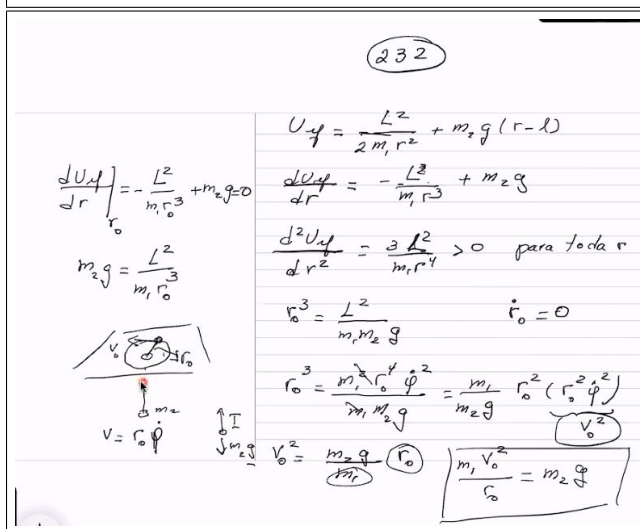 232
U_ef = L²/(2 m₁ r²) + m₂ g (r-l)
dU_ef/dr = - L²/(m₁ r³) + m₂ g
d²U_ef/dr² = 3 L²/(m₁ r⁴) > 0 para toda r
r₀³ = L²/(m₁ m₂ g) ṙ₀ = 0
r₀³ = m₁² r₀⁴ φ̇²/(m₁ m₂ g) = m₁/(m₂ g) r₀² (r₀² φ̇²)
v₀²
v₀² = m₂ g/m₁ r₀
m₁ v₀²/r₀ = m₂ g
dU_ef/dr|r₀ = - L²/(m₁ r₀³) + m₂ g = 0
m₂ g = L²/(m₁ r₀³)
v₀ r₀
m₂
v = r₀ φ̇
T
m₂ g